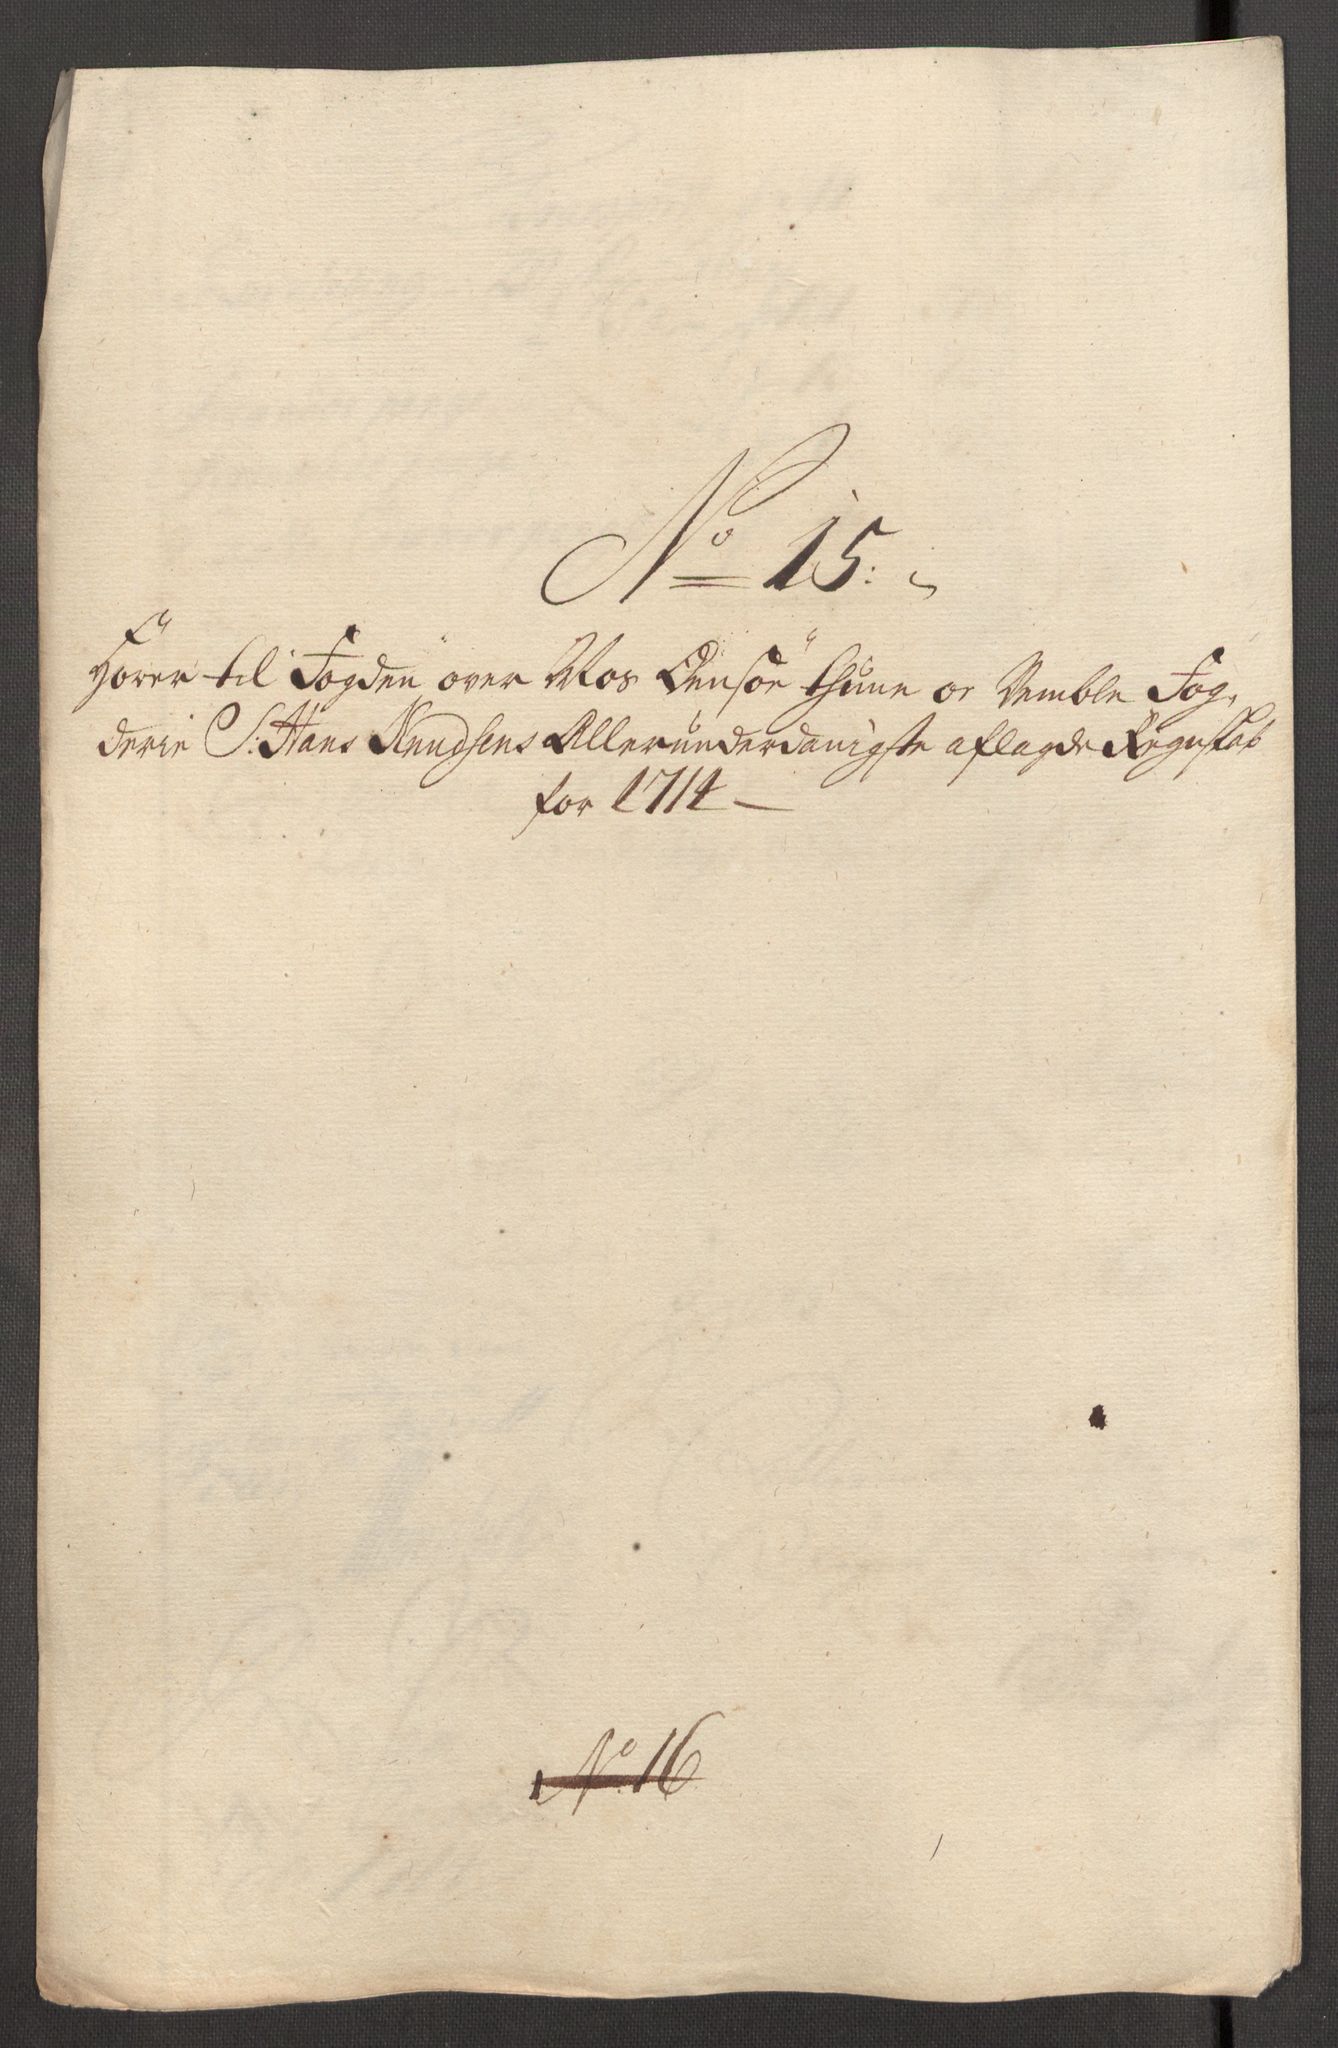 No 15:
Hörer til Fogden over Mos Onsöe thune oc Vemble Fog,
derie S: Hans Knudsens Allerunderdanigste aflagde Regnskab
for 1714
No. 16